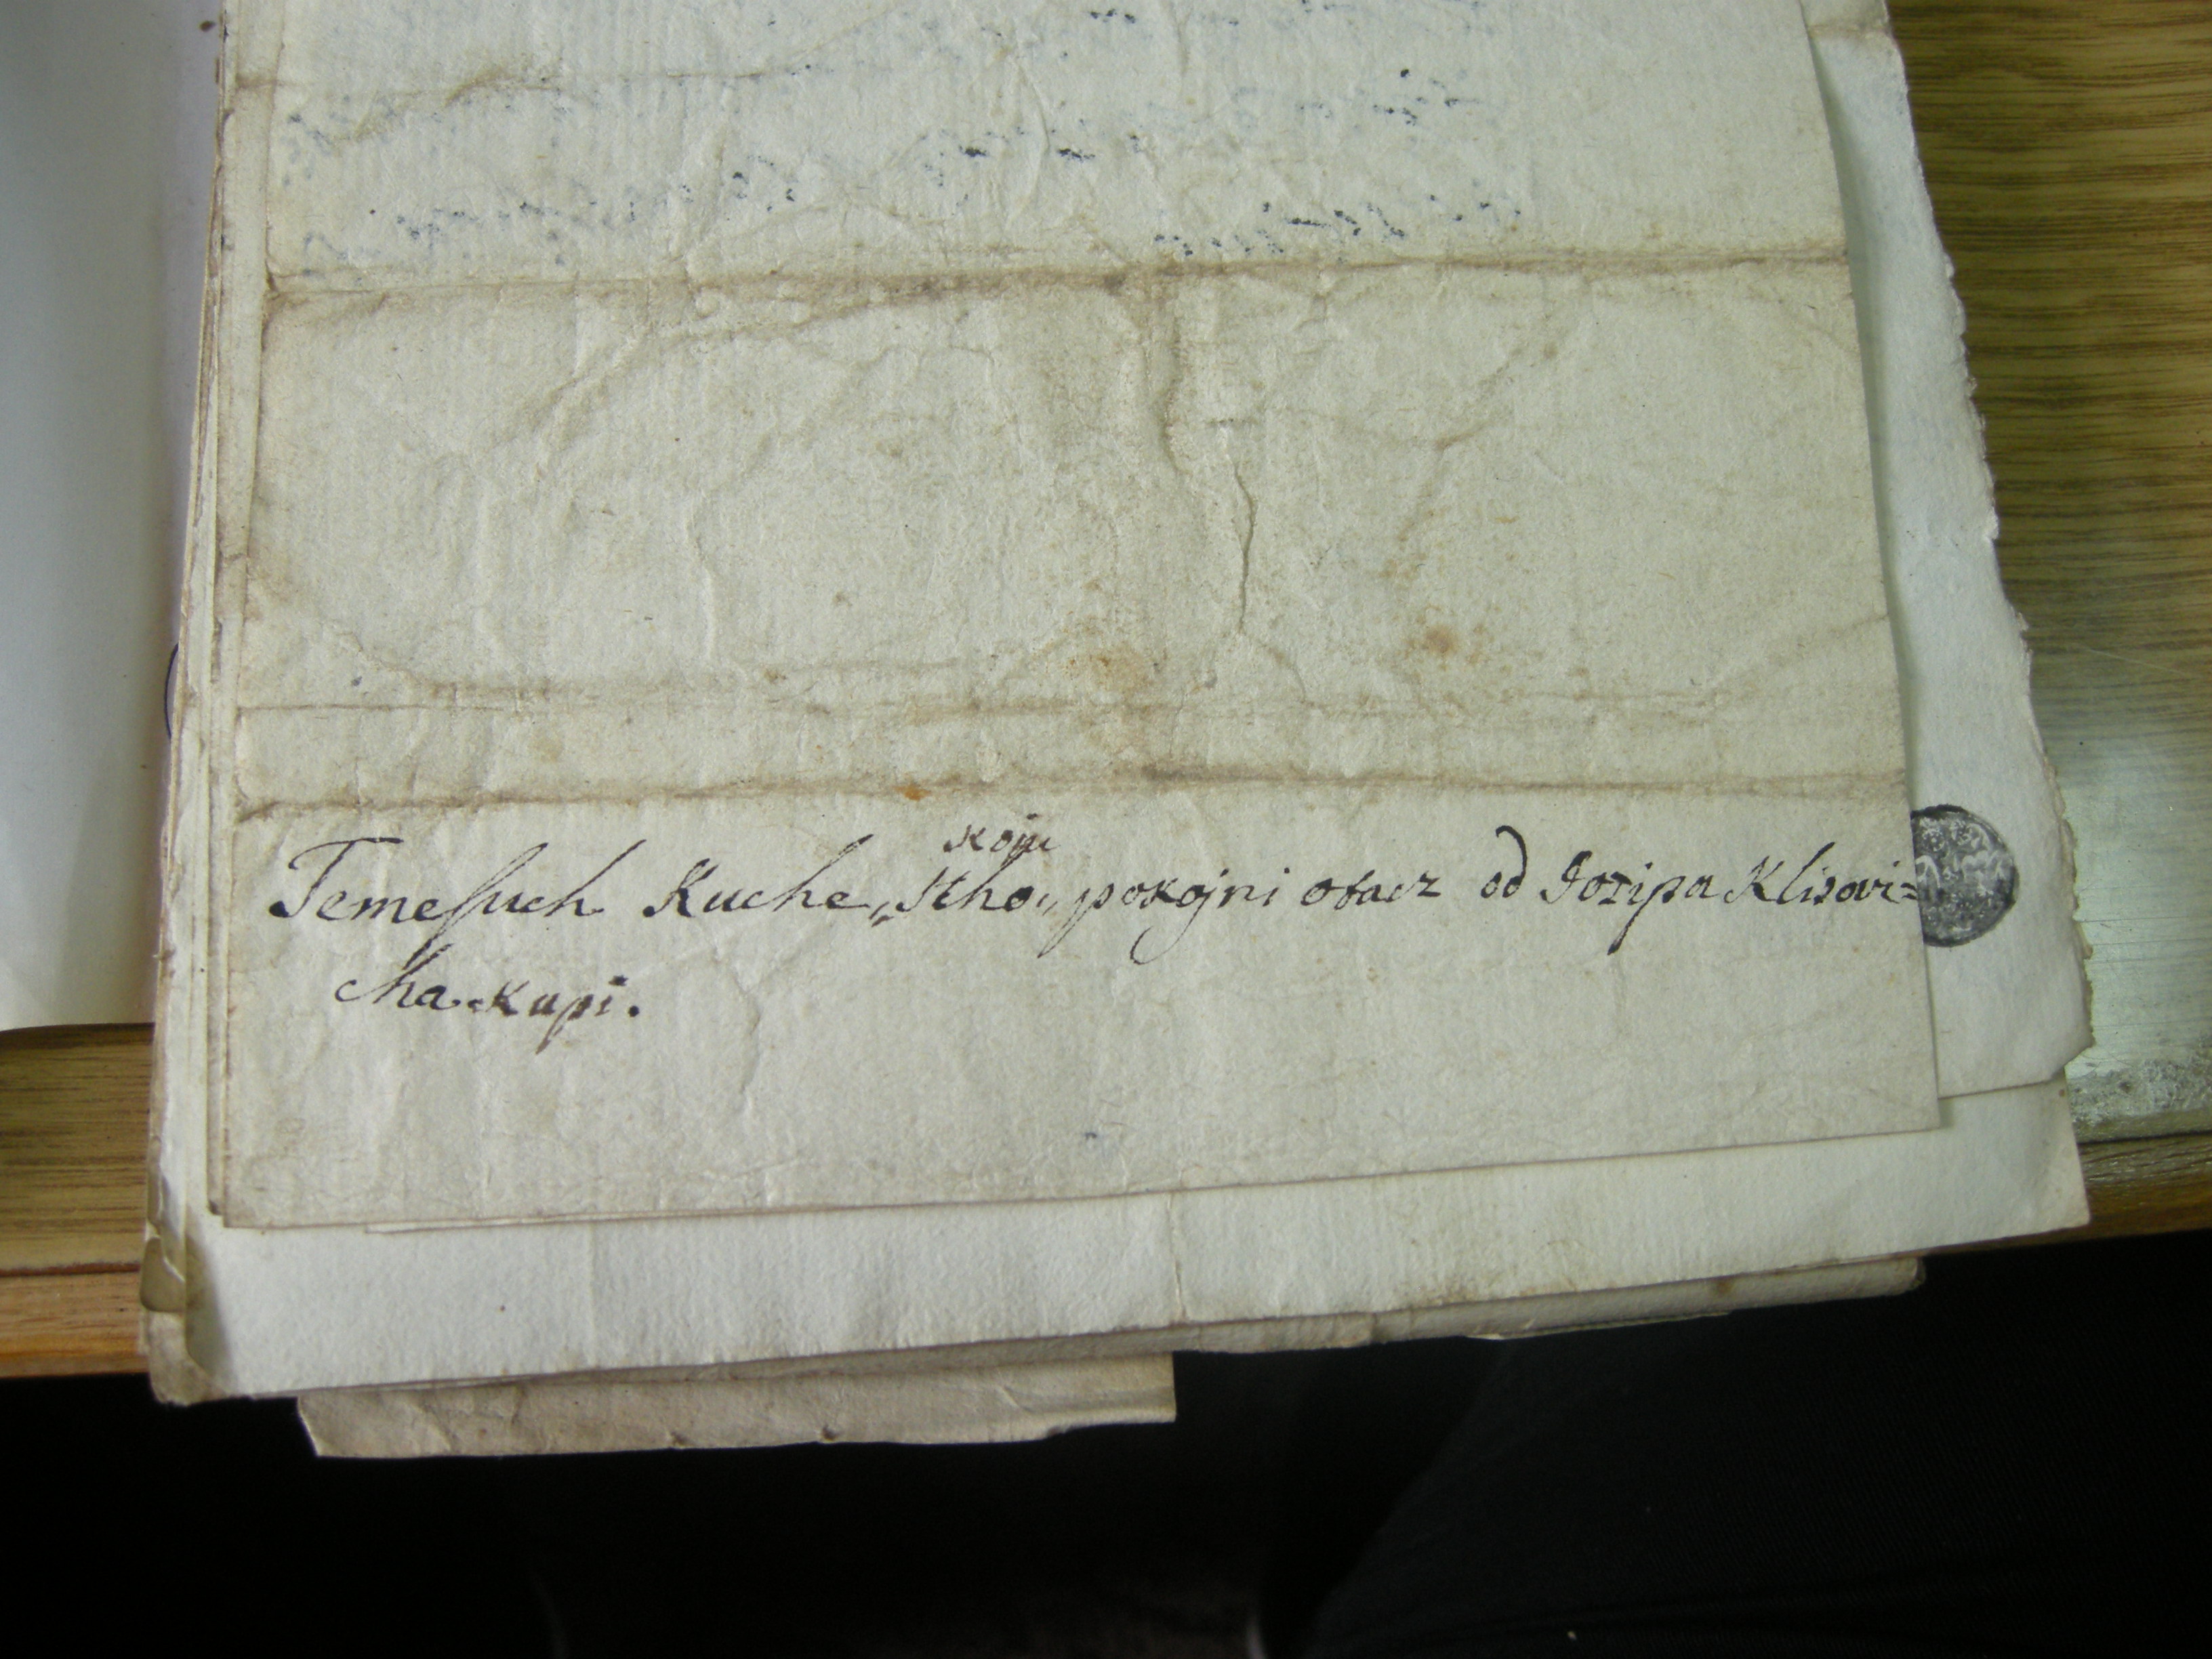 koju
Temeſsuch Kuche, „stho„ pokojni otacz od Josipa Klisovi=
cha kupi.